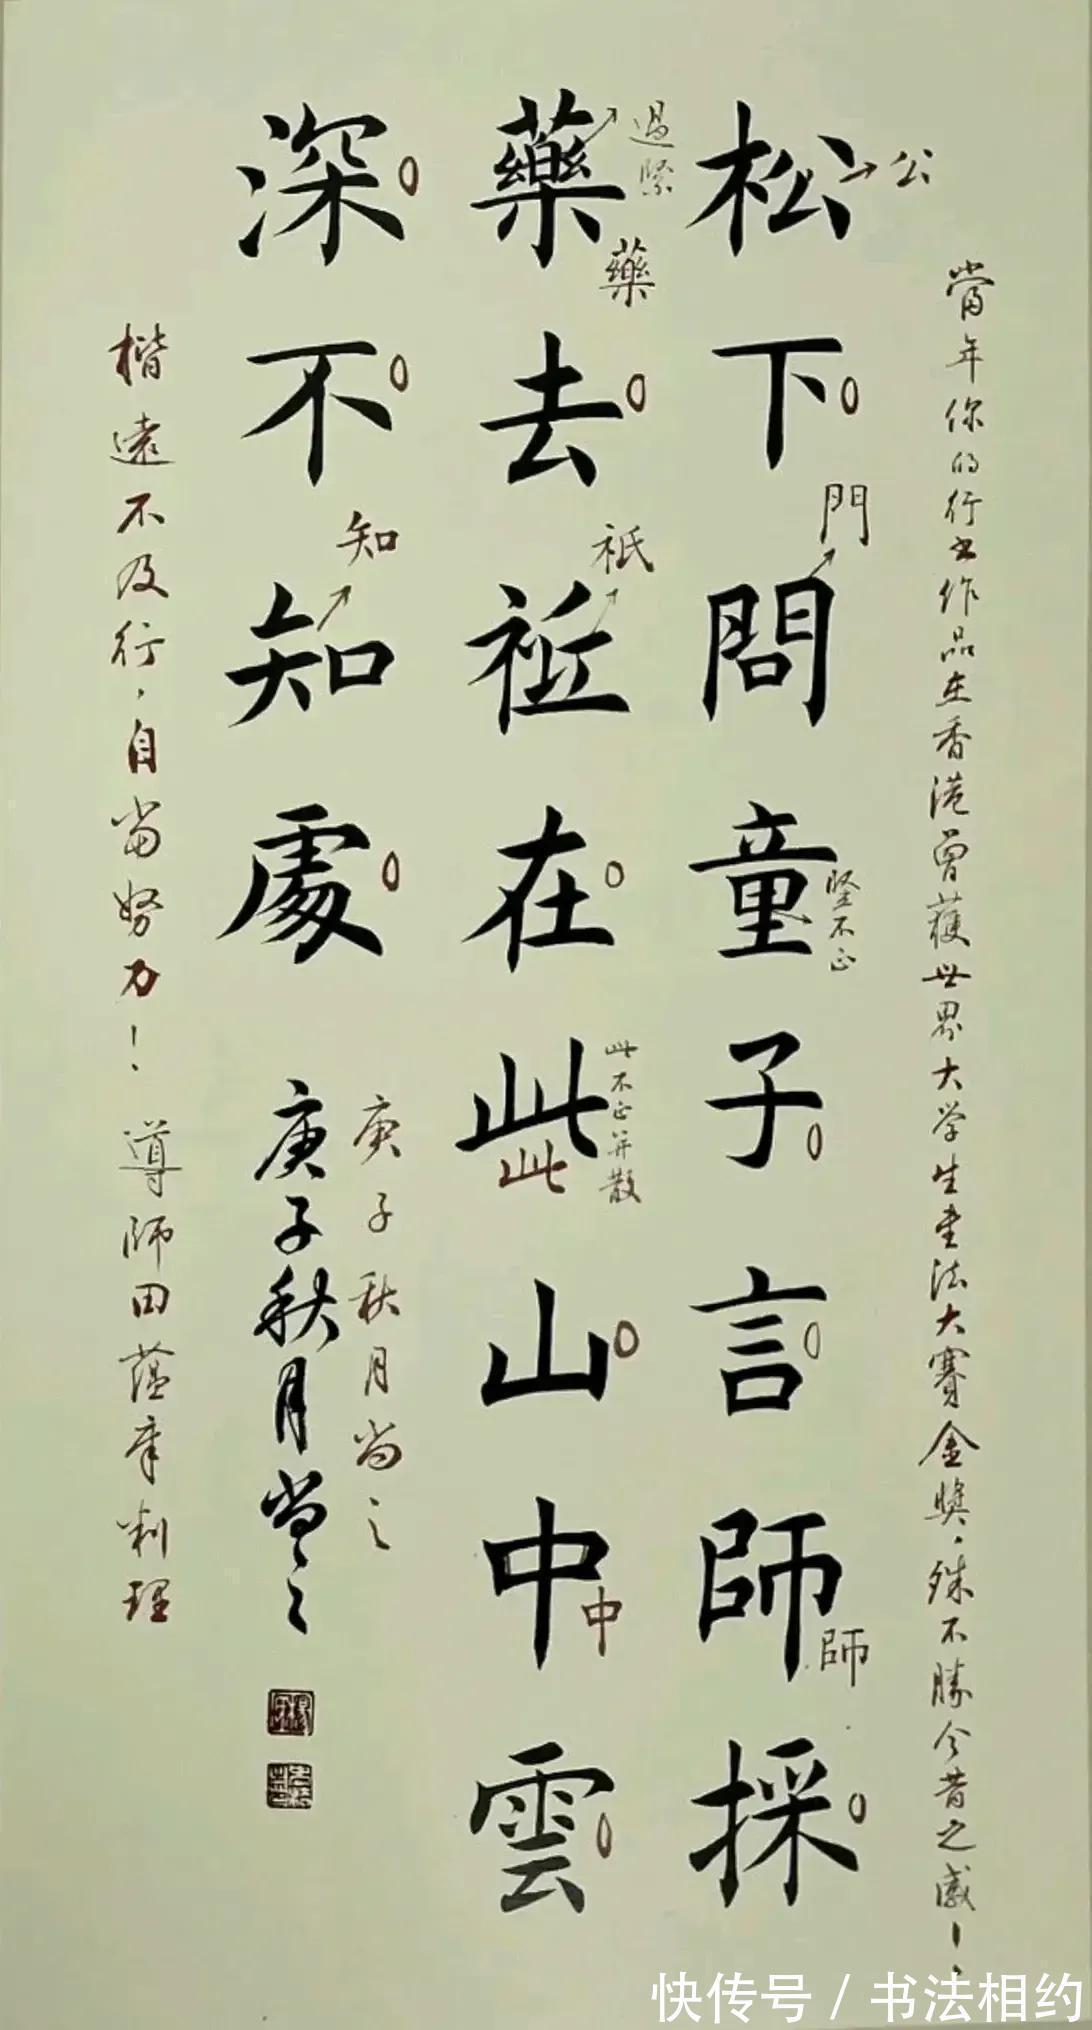 當年你的行书作品在香港曾獲世界大学生书法大賽金獎，殊不勝今昔之感！
松下問童子言師採
公
門
竪不正
師
藥去祗在此山中雲
過緊
藥
祇
此不正并散
此
中
深不知處
知
庚子秋月尚之
庚子秋月尚之
楷遠不及行，自當努力！導師田蕴章判理
快传号 / 书法相约